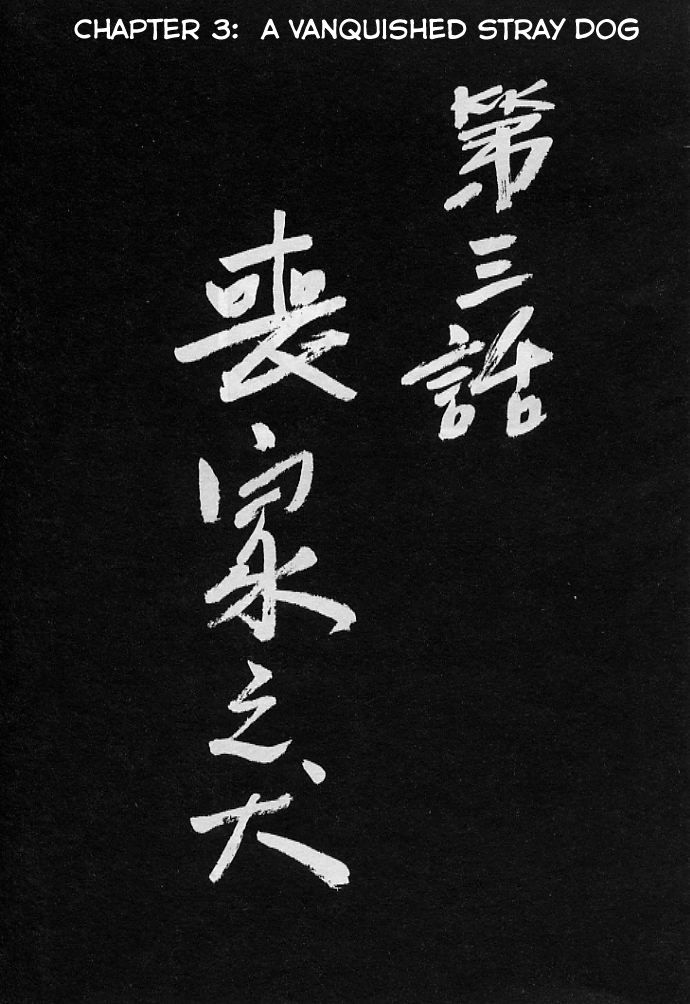 CHAPTER 3: A VANQUISHED STRAY DOG
第三話
喪家之犬